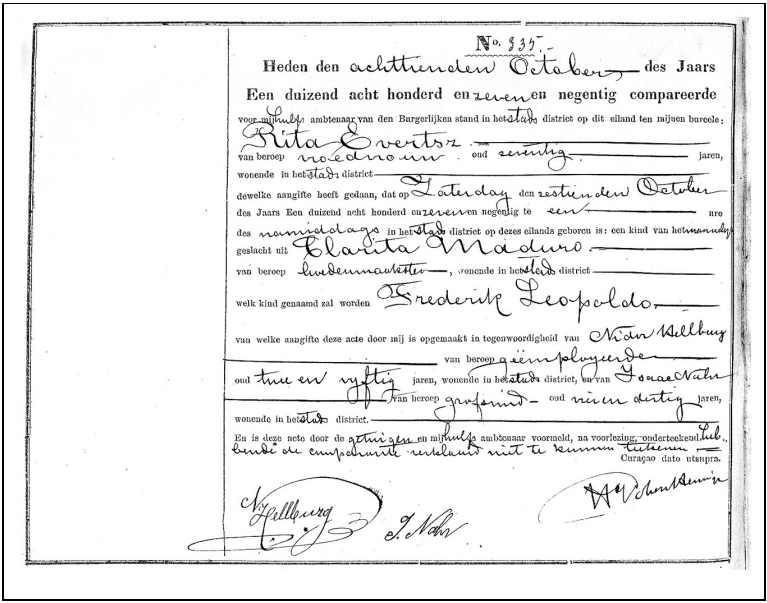 No. 335.-
Heden den achttienden October, des Jaars
Een duizend acht honderd en zeven en negentig compareerde
voor mij hulps ambtenaar van den Burgerlijken stand in het stads district op dit eiland ten mijnen bureele:
Rita Evertsz.
van beroep vroedvrouw oud zeventig jaren,
wonende in het stads district
dewelke aangifte heeft gedaan, dat op Zaterdag den zestienden October
des Jaars Een duizend acht honderd en zeven en negentig te een ure
des namiddags in het stads district op dezes eilands geboren is: een kind van het mannelijk
geslacht uit Clarita Maduro.
van beroep hoedenmaakster, wonende in het stads district
welk kind genaamd zal worden Frederik Leopoldo.
van welke aangifte deze acte door mij is opgemaakt in tegenwoordigheid van Hellburg
van beroep geëmployeerde
oud twee en vyftig jaren, wonende in het stads district, en van Isaac Nahr
van beroep grofsmid oud dertig jaren,
wonende in het stads district.
En is deze acte door de getuigen en mij hulps ambtenaar voormeld, na voorlezing, onderteekend, heb-
bende de comparante verklaard niet te kunnen teekenen
Curaçao dato utsupra.
N. Hellburg
J. Nahr